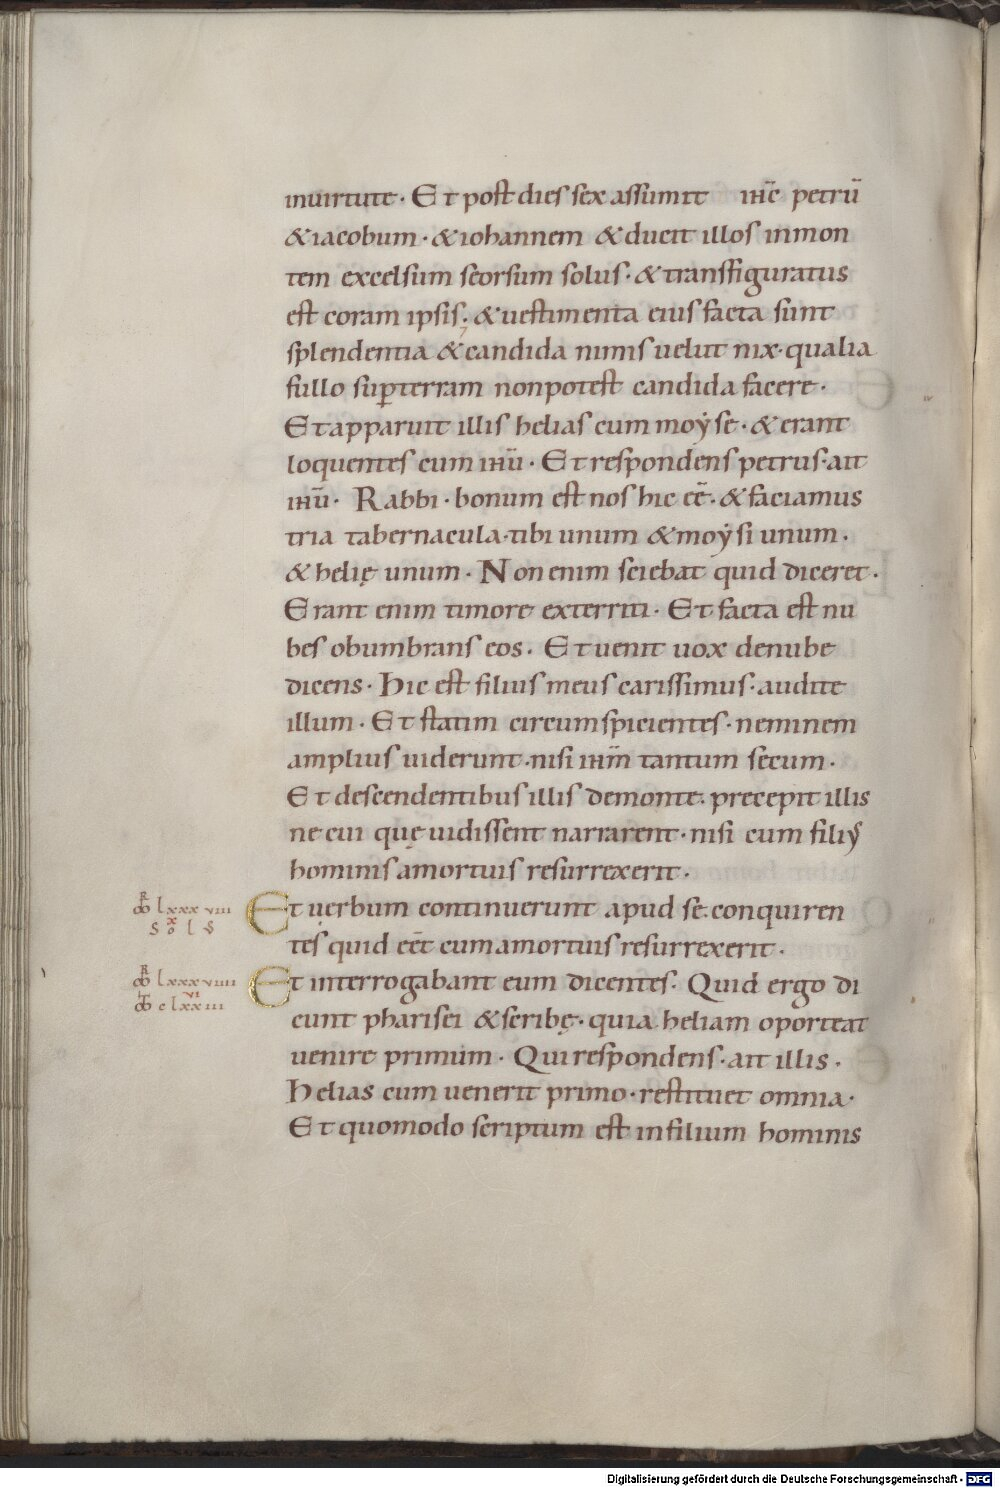 inuirtute· Et post dies sex assumit ihc̄ petrū
& iacobum· & iohannem & ducit illos inmon
tem excelsum seorsum solus· & transfiguratus
est coram ipsis· & uestimenta eius facta sunt
splendentia & candida nimis uelut nix· qualia
fullo sup terram nonpotest candida facere·
Et apparuit illis helias cum moẏse· & erant
loquentes cum ihū· Et respondens petrus· ait
ihū· Rabbi· bonum est nos hic eē· & faciamus
tria tabernacula· tibi unum & moẏsi unum·
& helię unum· Non enim sciebat quid diceret·
Erant enim timore exterriti· Et facta est nu
bes obumbrans eos· Et uenit uox denube
dicens· Hic est filius meus carissimus· audite
illum· Et statim circumspicientes· neminem
amplius uiderunt· nisi ihm̄ tantum secum·
Et descendentibus illis demonte· precepit illis
ne cui quę uidissent narrarent· nisi cum filius
hominis amortuis resurrexerit·
Et uerbum continuerunt apud se· conquiren
tes quid eēt cum amortuis resurrexerit·
Et interrogabant eum dicentes· Quid ergo di
cunt pharisei & scribę· quia heliam oporteat
uenire primum· Qui respondens· ait illis·
Helias cum uenerit primo· restituet omnia·
Et quomodo scriptum est infilium hominis
lxxxviii
lxxxviiii
clxxiii
Digitalisierung gefördert durch die Deutsche Forschungsgemeinschaft - DFG